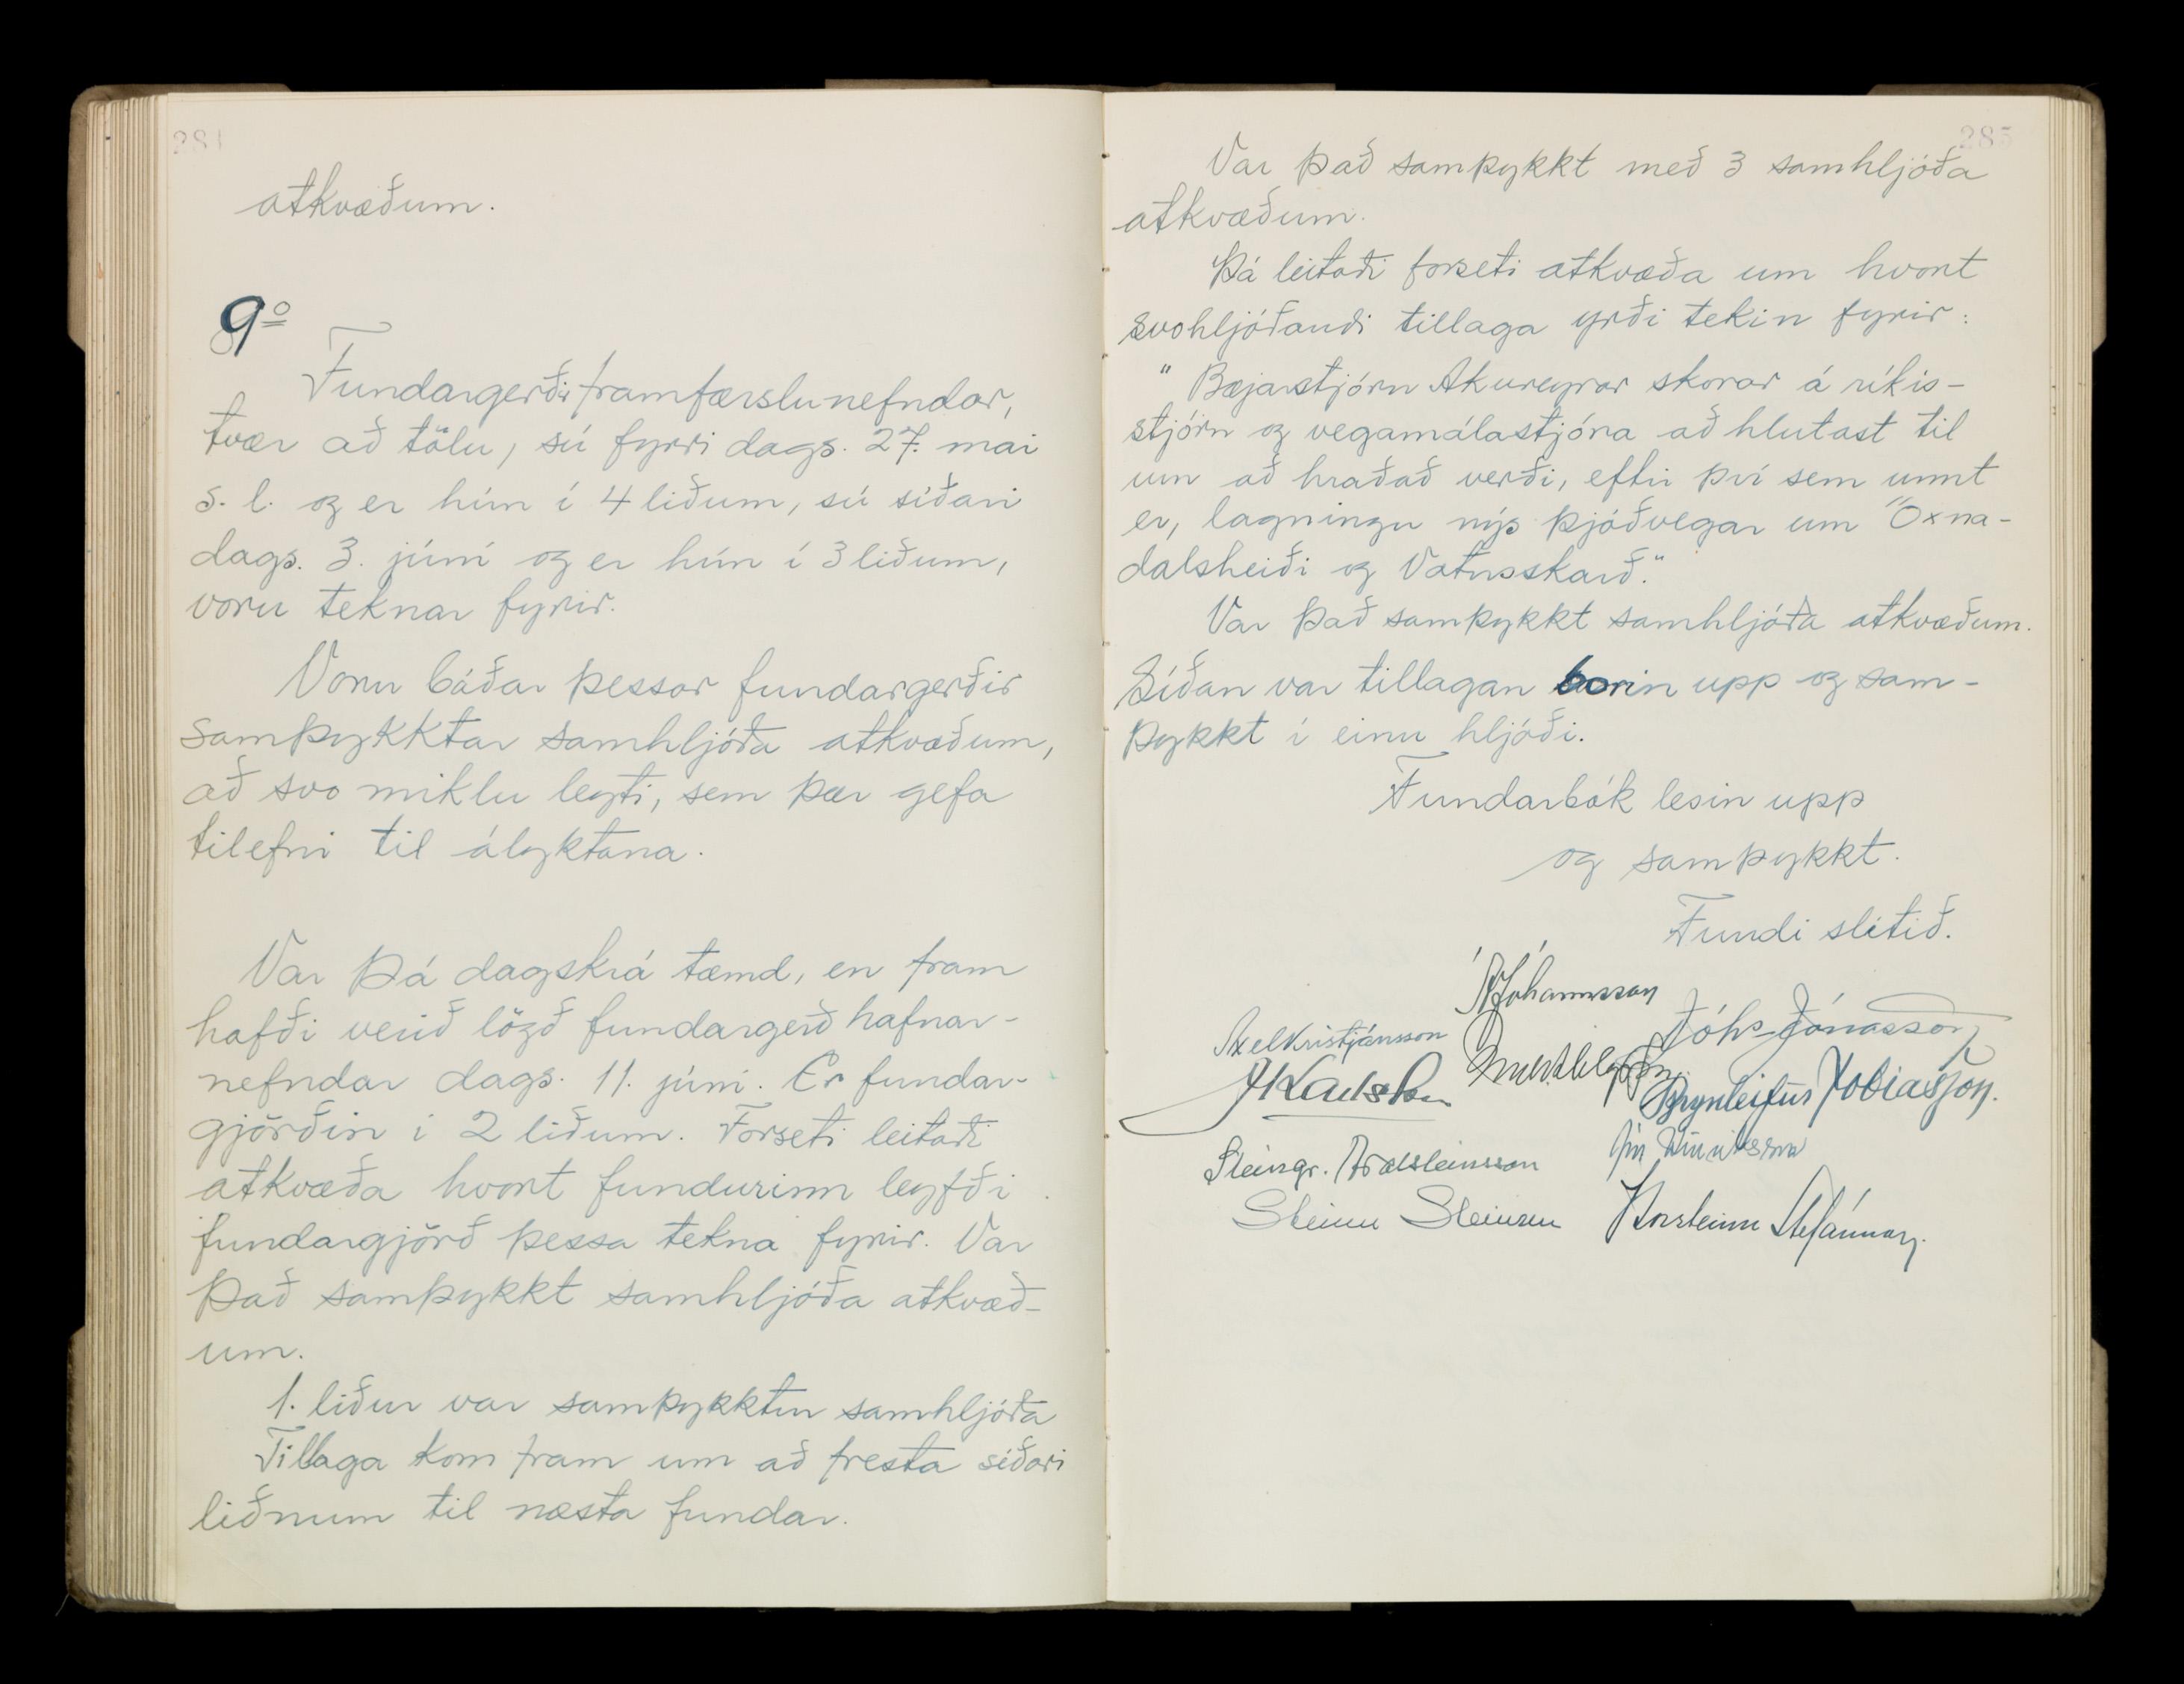 atkvæðum.
9º
Fundargerðir framfærslunefndar,
tvær að tölu, sú fyrri dags. 27. mai
s. l. og er hún í 4 liðum, sú síðari
dags. 3. júní og er hún í 3 liðum,
voru teknar fyrir.
Voru báðar þessar fundargerðir
samþykktar samhljóða atkvæðum,
að svo miklu leyti, sem þær gefa
tilefni til ályktana.
Var þá dagskrá tæmd, en fram
hafði verið lögð fundargerð hafnar-
nefndar dags. 11. júní. Er fundar-
gjörðin í 2 liðum. Forseti leitaði
atkvæða hvort fundurinn leyfði
fundargjörð þessa tekna fyrir. Var
það samþykkt samhljóða atkvæð-
um.
1. liður var samþykktur samhljóða
Tillaga kom fram um að fresta síðari
liðnum til næsta fundar.
285
Var það samþykkt með 3 samhljóða
atkvæðum.
Þá leitaði forseti atkvæða um hvort
svohljóðandi tillaga yrði tekin fyrir:
" Bæjarstjórn Akureyrar skorar á ríkis-
stjórn og vegamálastjóra að hlutast til
um að hraðað verði, eftir því sem unnt
er, lagningu nýs þjóðvegar um Öxna-
dalsheiði og Vatnsskarð."
Var það samþykkt samhljóða atkvæðum.
Síðan var tillagan borin upp og sam-
þykkt í einu hljóði.
Fundarbók lesin upp
og samþykkt.
Fundi slitið.
Jóhannsson
Axel Kristjánsson
Jóhs Jónasson
Brynleifur Tobiasson.
Steingr. Aðalsteinsson
Steinn Steinsen
Þorsteinn Stefánsson.